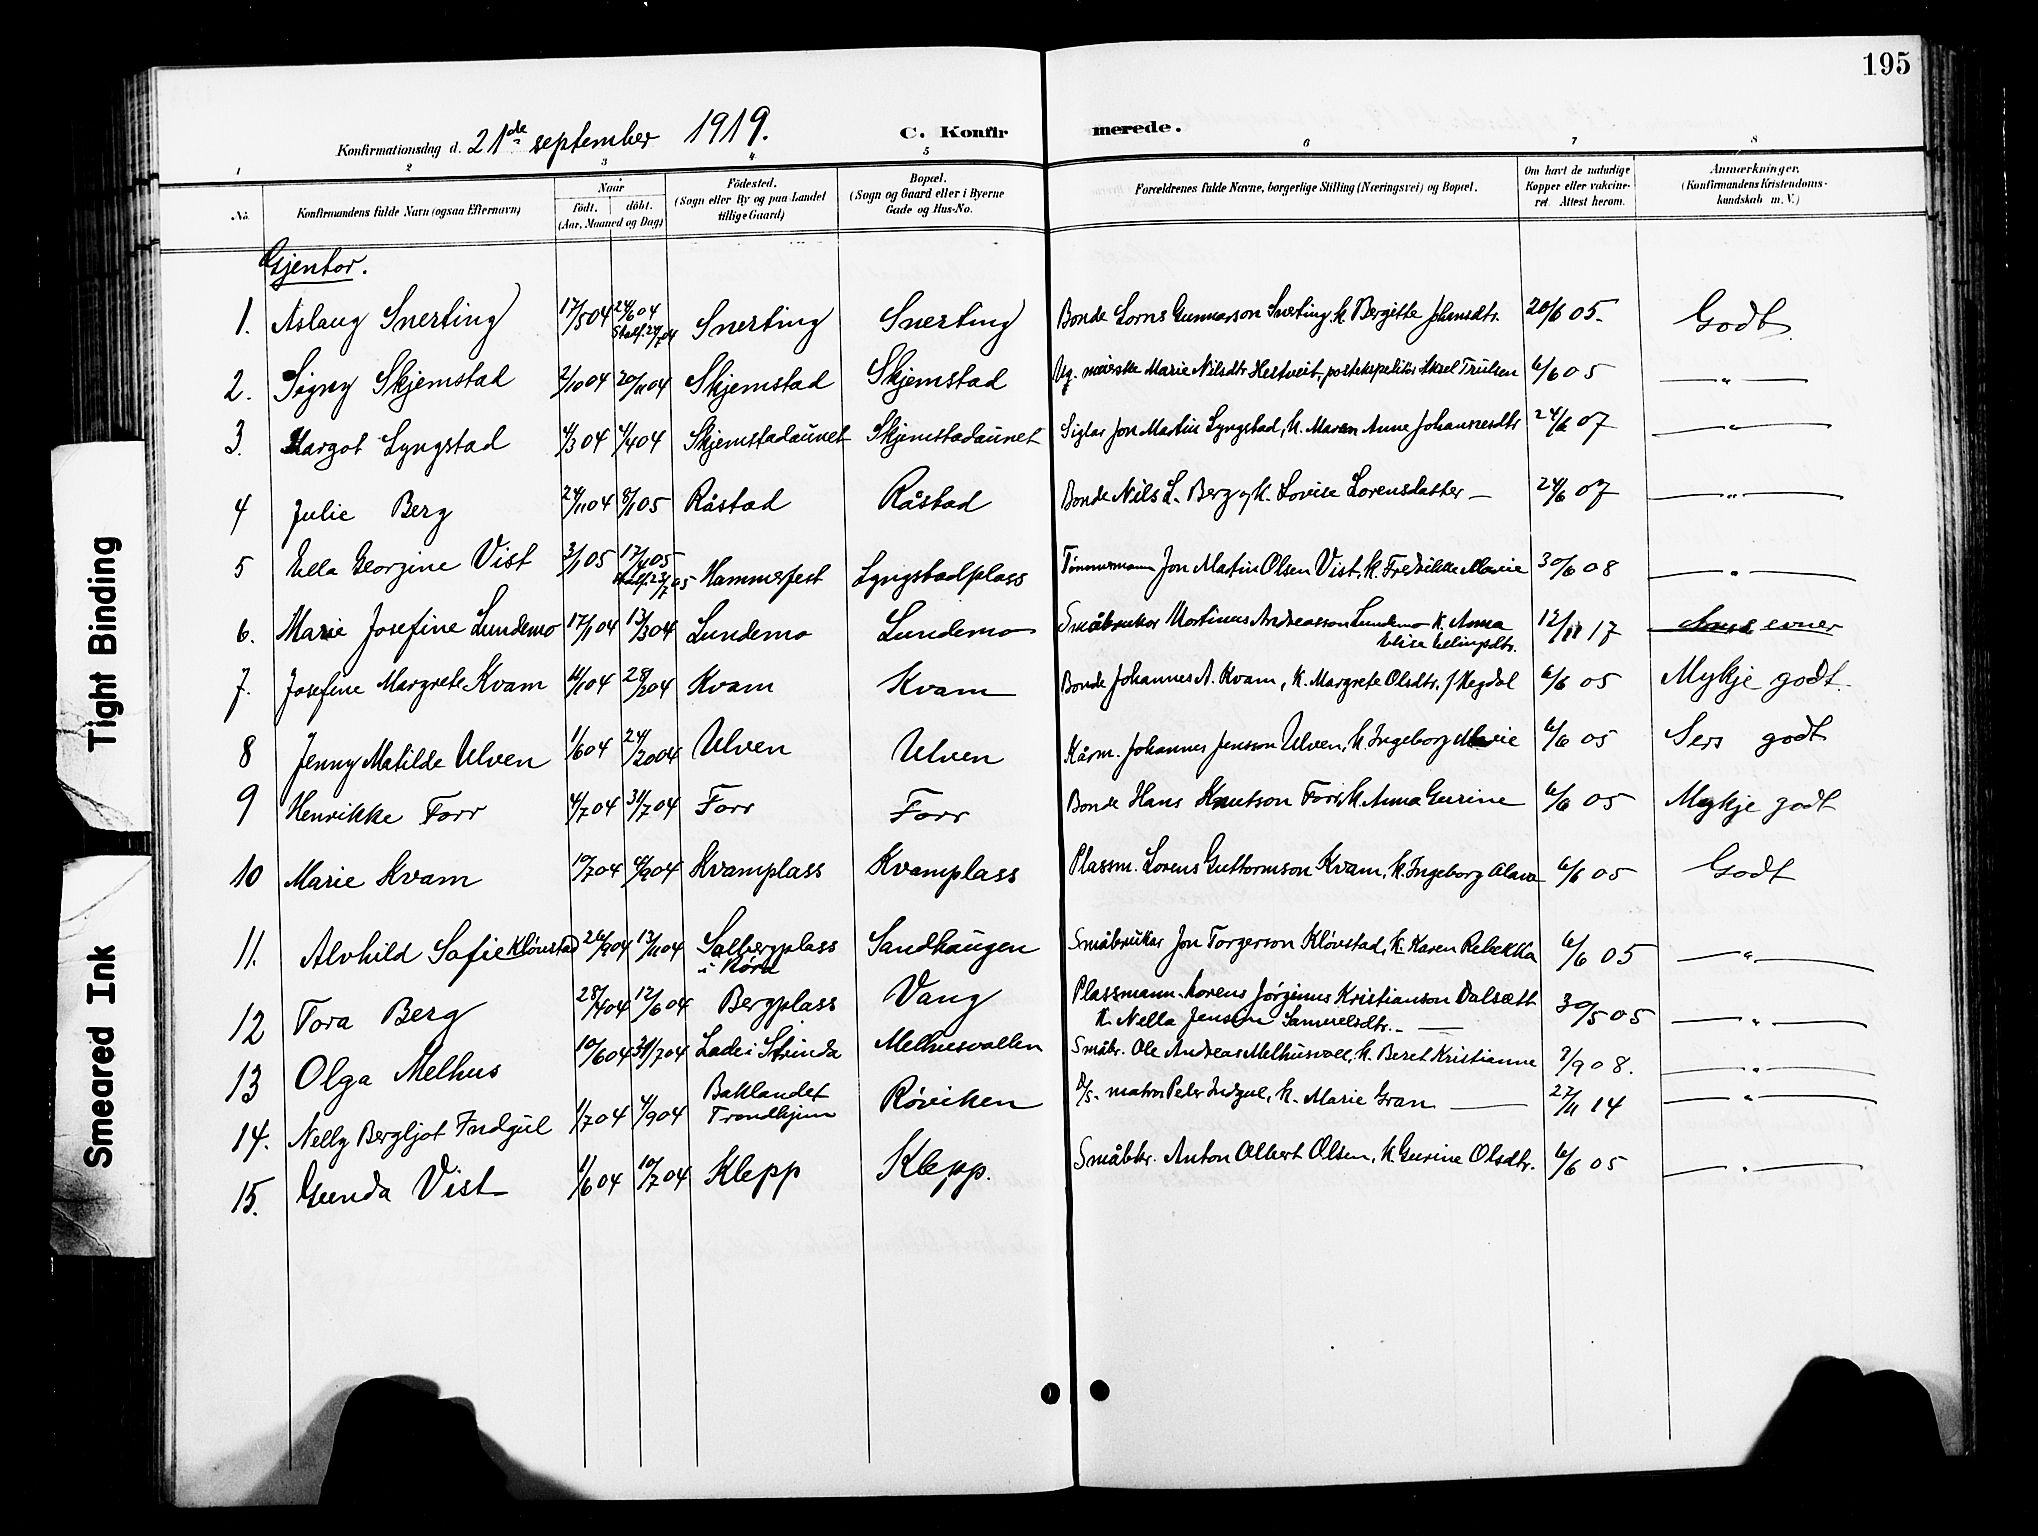 195
Konfirmationsdag d. 21de september 1919.
C. Konfirmerede.
1 2 3 4 5 6 7 8
No.
Konfirmandens fulde Navn (ogsaa Efternavn)
Naar
födt. döbt.
(Aar, Maaned og Dag)
Födested.
(Sogn eller By og paa Landet
tillige Gaard)
Bopæl.
(Sogn og Gaard eller i Byerne
Gade og Hus-No.
Forældrenes fulde Navne, borgerlige Stilling (Næringsvei) og Bopæl.
Om havt de naturlige
Kopper eller vakcine-
ret. Attest herom.
Anmærkninger.
(Konfirmandens Kristendoms-
kundskab m. V.)
Gjentor.
1. Aslaug Snerting 17/5 04 24/6 04 Snerting Snerting Bonde Lorns Gunnarson Snerting, k. Bergitte Johansdtr. 20/6 05. Godt
Stadf. 24/7 04
2. Signy Skjemstad 2/10 04 20/11 04 Skjemstad Skjemstad Ug. meierske Marie Nilsdtr Hestveit, postekspeditör Aksel Trulsen 6/6 05 — " —
3. Margot Lyngstad 4/3 04 4/4 04 Skjemstadaunet Skjemstadaunet Jon Martin Lyngstad, k. Maren Anne Johannesdtr 24/6 07 — " —
4 Julie Berg 24/11 04 8/1 05 Råstad Råstad Bonde Nils L. Berg, k. Lovise Lorensdatter — 24/6 07 — " —
5 Ella Georgine Vist 3/1 05 17/4 05 Hammerfest Lyngstadplass Tömmermann Jon Martin Olsen Vist, k. Fredrikke Marie 30/6 08 — " —
Stadf. 23/7 05
6. Marie Josefine Lundemo 17/1 04 13/3 04 Lundemo Lundemo Småbruker Martinus Andreasson Lundemo k. Anna 12/11 17 evner
Elise Ellingsdtr.
7. Josefine Margrete Kvam 16/1 04 28/3 04 Kvam Kvam Bonde Johannes A. Kvam, k. Margrete Olsdtr. f. Hegdal 6/6 05 Mykje godt.
8 Jenny Matilde Ulven 1/6 04 24/20 04 Ulven Ulven Kårm. Johannes Jensson Ulven, k. Ingeborg Marie 6/6 05 Sers godt
9 Henrikke Forr 4/7 04 31/7 04 Forr Forr Bonde Hans Knutson Forr, k. Anna Gurine 6/6 05 Mykje godt
10 Marie Kvam 10/7 04 4/9 04 Kvamplass Kvamplass Plassm. Lorens Guttormson Kvam, k. Ingeborg Olava 6/6 05 Godt
11. Alvhild Sofie Klövstad 26/9 04 13/11 04 Salbergplass Sandhaugen Småbrukar Jon Torgerson Klövstad, k. Karen Rebekka 6/6 05 — " —
i Röra
12 Tora Berg 28/4 04 12/6 04 Bergplass Vang Plassmann Lorens Jørginus Kristianson Dalsætt 30/5 05 — " —
k. Nella Jensine Samuelsdtr. —
13 Olga Melhus 10/6 04 31/7 04 Lade i Strinda Melhusvollen Småbr. Ole Andreas Melhusvoll, k. Beret Kristianne 9/9 08. — " —
14. Nelly Bergljot Indgul 1/7 04 4/9 04 Baklandet Röviken D/s. matros Peder Indgul, k. Marie Gran — 27/11 14 — " —
Trondhjem
15. Gunda Vist 1/6 04 10/7 04 Klepp Klepp. Småbr. Anton Albert Olsen, k. Gurine Olsdtr. 6/6 05 — " —
Tight Binding
Smeared Ink